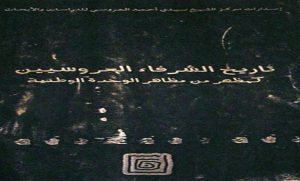 إصدارات مركز الشيخ سيدي أحمد العروسي للدراسات والأبحاث
تاريخ الشرفاء العروسيين
كمظهر من مظاهر الوحدة الوطنية